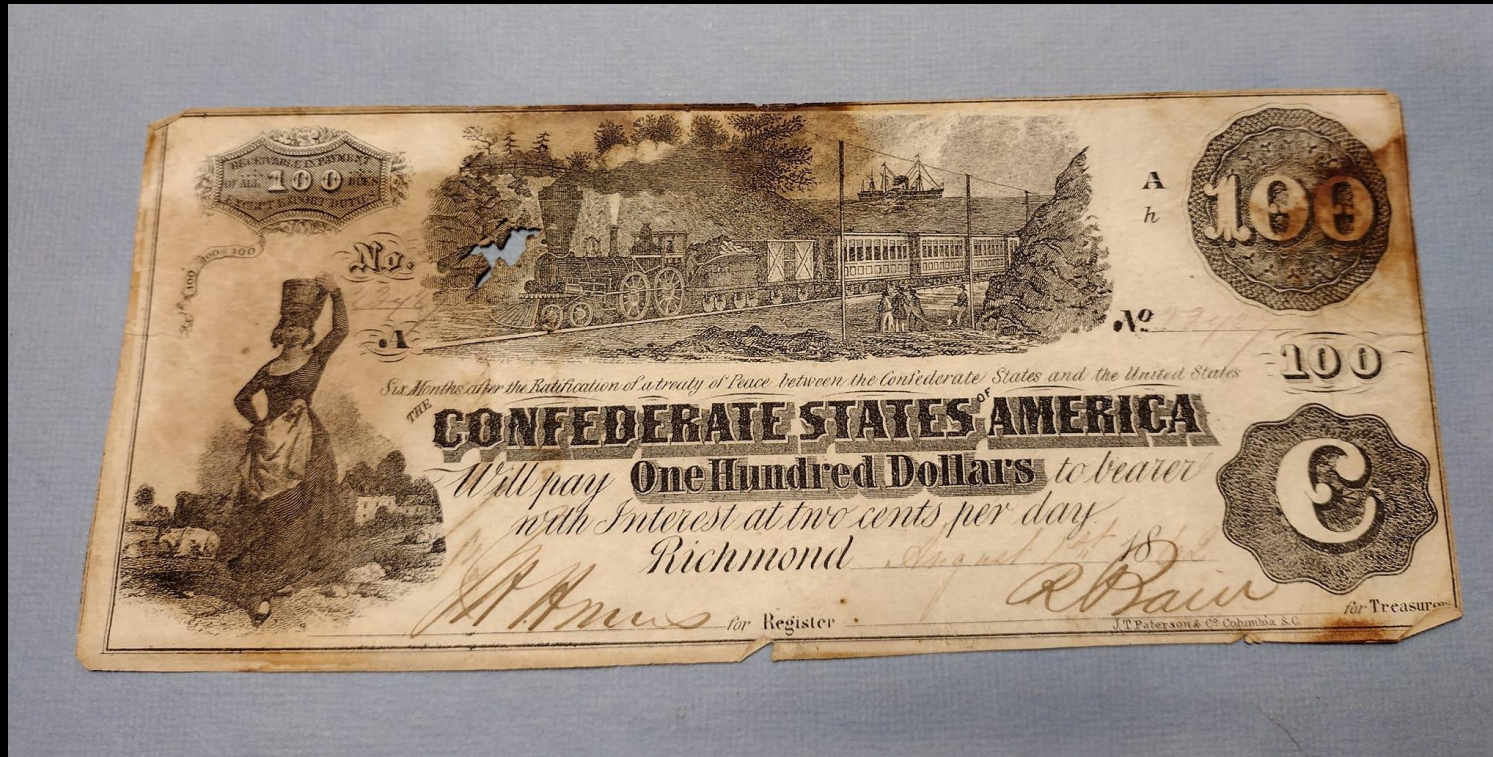 RECEIVABLE IN PAYMENT
OF ALL 100 DUES
EXCEPT EXPORT DUTIES
100 100 100
No.
A
A
h
100
No
100
Six Months after the Ratification of a treaty of Peace between the Confederate States and the United States
THE CONFEDERATE STATES OF AMERICA
Will pay One Hundred Dollars to bearer
with Interest at two cents per day
Richmond August 1st 1862
C
for Register
for Treasurer
J.T. Paterson & Co Columbia S.C.